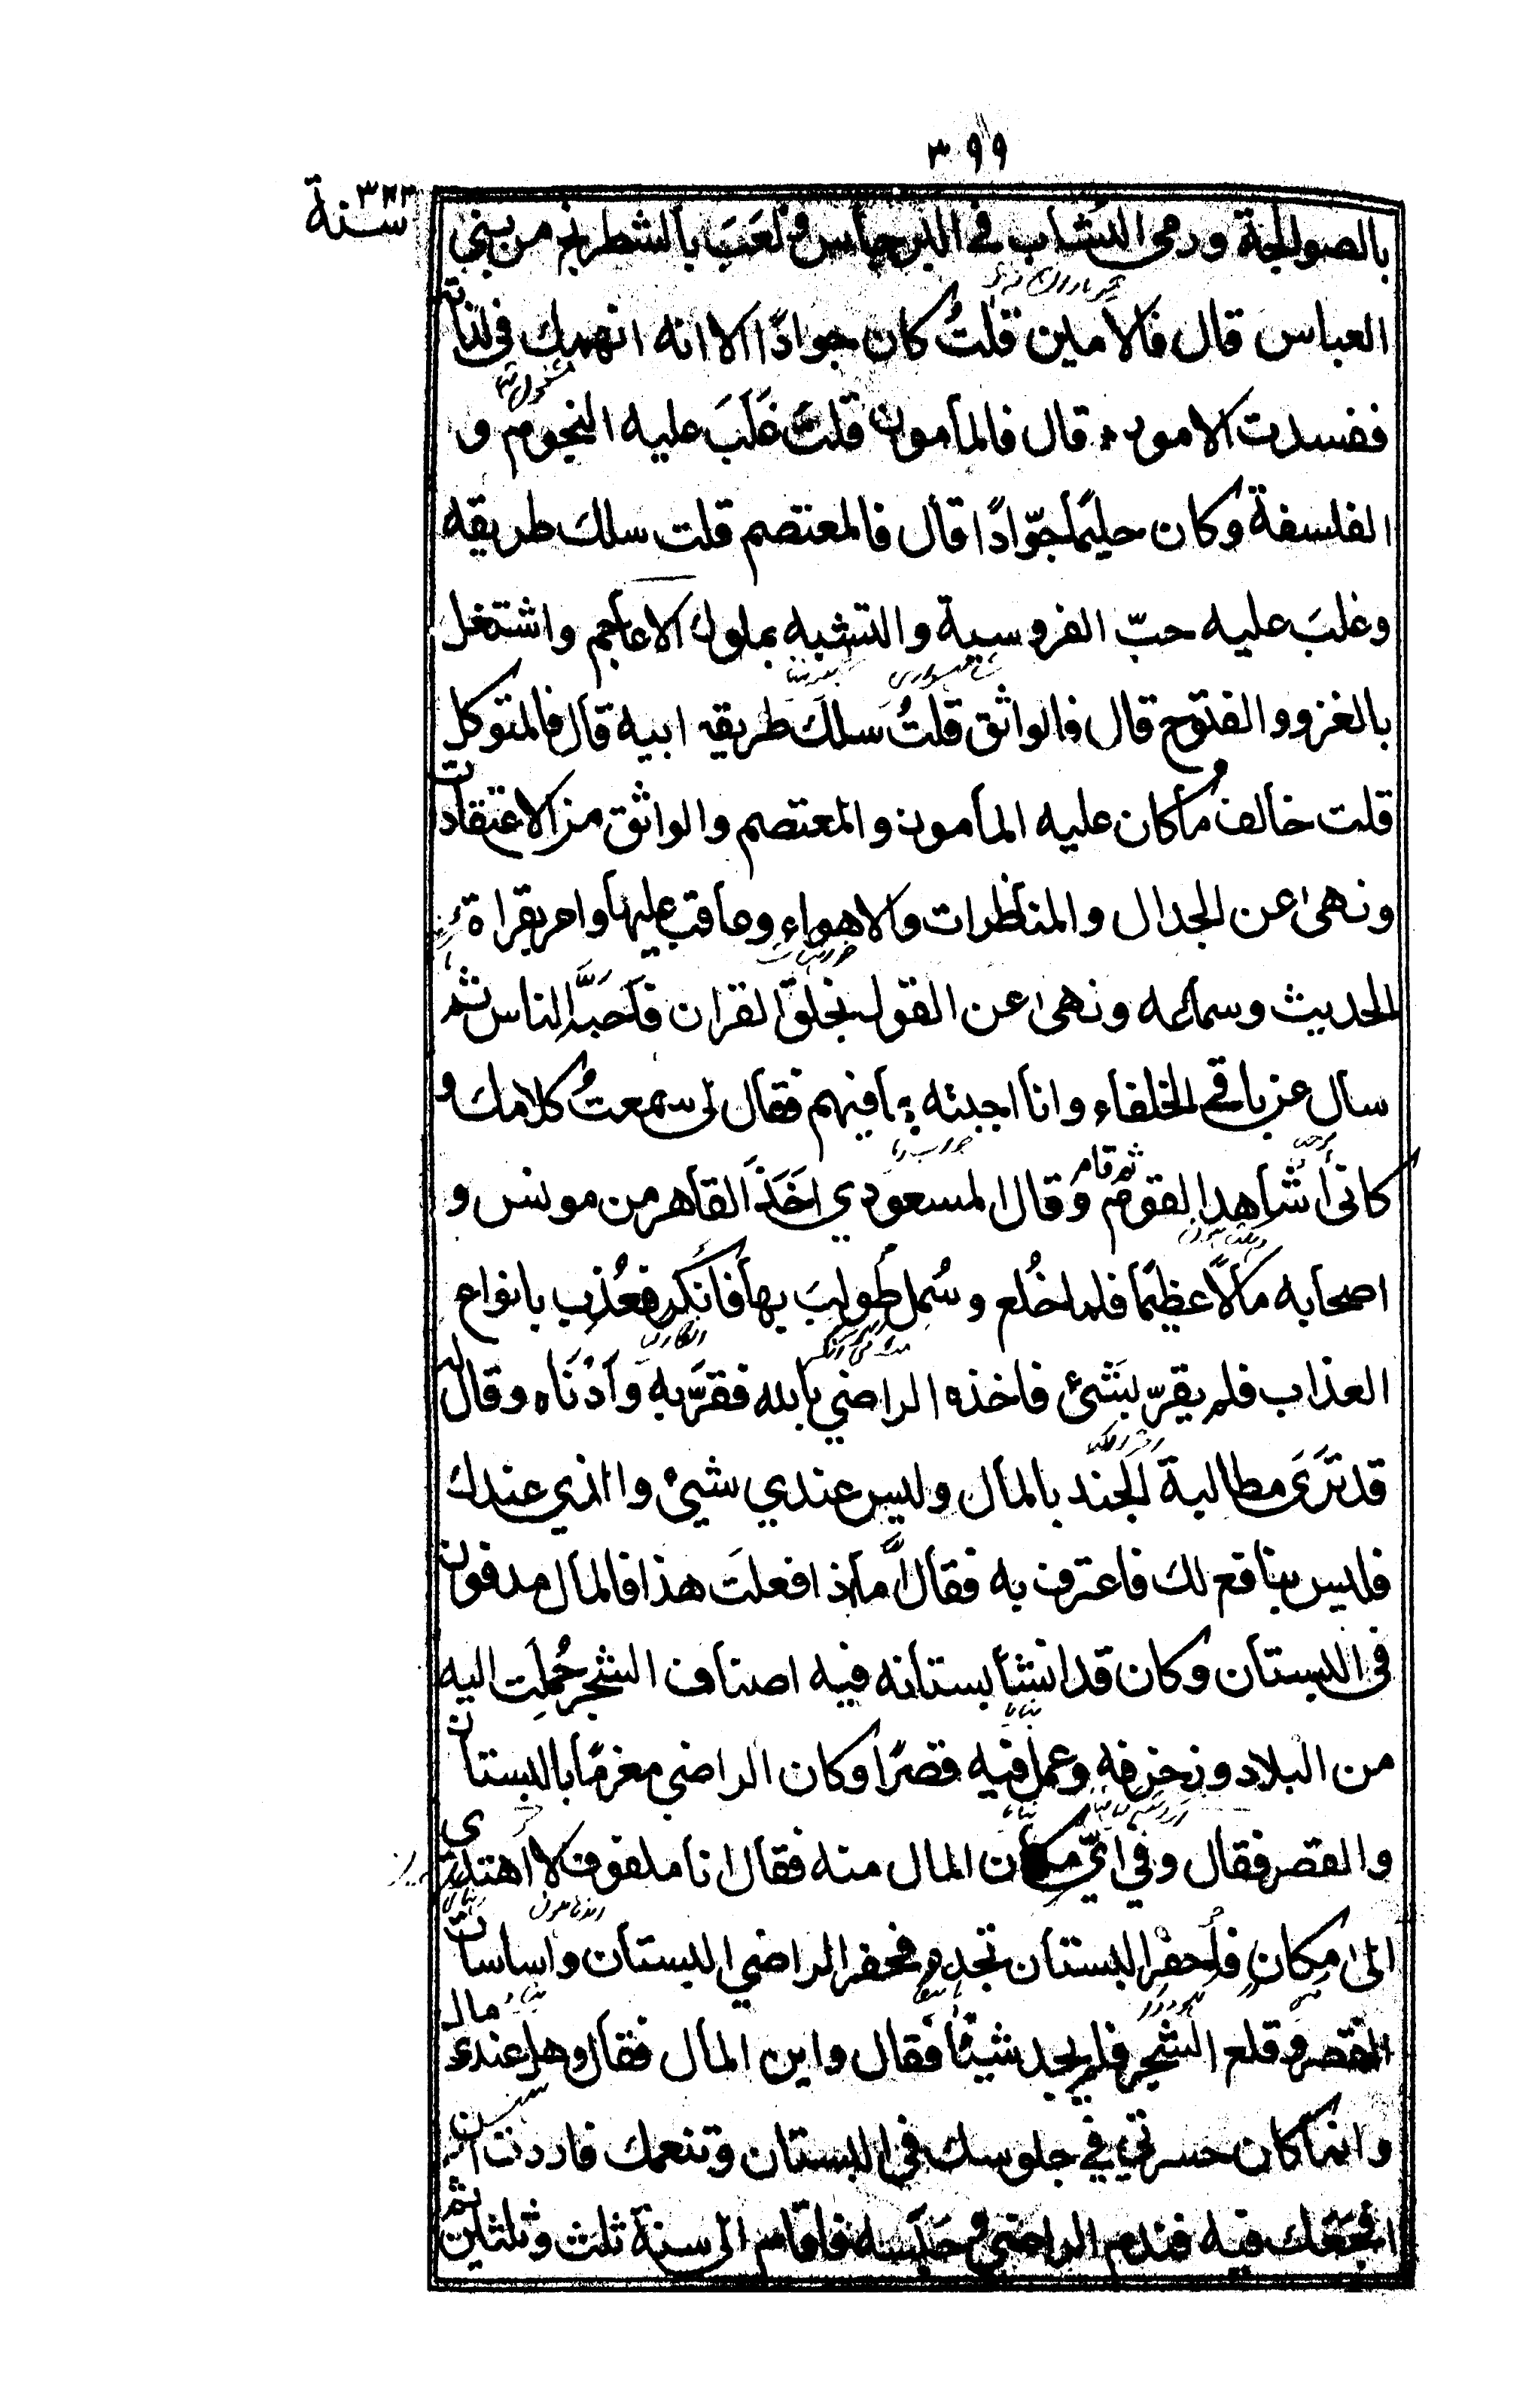 ٣٩٩
سنة ٣٢٢
بالصوالجة ورمى النشاب في البرجاس ولَعَبَ بالشطرنج من بني
العباس قال فالامين قلتُ كان جوادًا الا انه انهمك في لذاته
ففسدت الامور قال فالمأمون قلتُ غَلَبَ عليه النجوم و
الفلسفة وكان حليمًا جوّادًا قال فالمعتصم قلت سلك طريقه
وغلبَ عليه حبّ الفروسية والتشبه بملوك الاعاجم واشتغل
بالغزو والفتوح قال فالواثق قلتُ سلكَ طريقه ابيه قال فالمتوكل
قلت خالف ما كان عليه المأمون والمعتصم والواثق من الاعتقادات
ونهى عن الجدال والمناظرات والاهواء وعاقب عليها وامر بقراءة
الحديث وسماعه ونهى عن القول بخلق القران فاَحَبَّه الناس ثم
سال عن باقي الخلفاء وانا اجبته بما فيهم فقال لى سمعتُ كلامك و
كانى أُشاهد القوم ثم قام وقال المسعودي اخَذَ القاهر من مونس و
اصحابه مالًا عظيمًا فلما خُلع وسُمل طُولبَ بها فاَنْكر فعُذب بانواع
العذاب فلم يقرّ بشئ فاخذه الراضي بالله فقرَّبه واَدْنَاه وقال له
قد تَرَى مطالبة الجند بالمال وليس عندي شيئ والذي عندك
فليس بنافع لك فاعترف به فقال اَمَّا اذا فعلتَ هذا فالمال مدفون
فى البستان وكان قد انشأ بستانه فيه اصناف الشجر حُمِلَت اليه
من البلاد وزخرفه وعمل فيه قصرًا وكان الراضي مغرمًا بالبستان
والقصر فقال وفي ايّ مكان المال منه فقال انا ملفوف لا اهتدي
الى مكان فاُحفِر البستان تجده فحفر الراضي البستان واساسات
القصر وقلع الشجر فلم يجد شيئًا فقال واين المال فقال وهل عندى مال
وانما كان حسرتي في جلوسك في البستان وتنعمك فاردت ان
افجعك فيه فندم الراضي وحَبَسه فاقام الى سنة ثلث وثلثين ثم